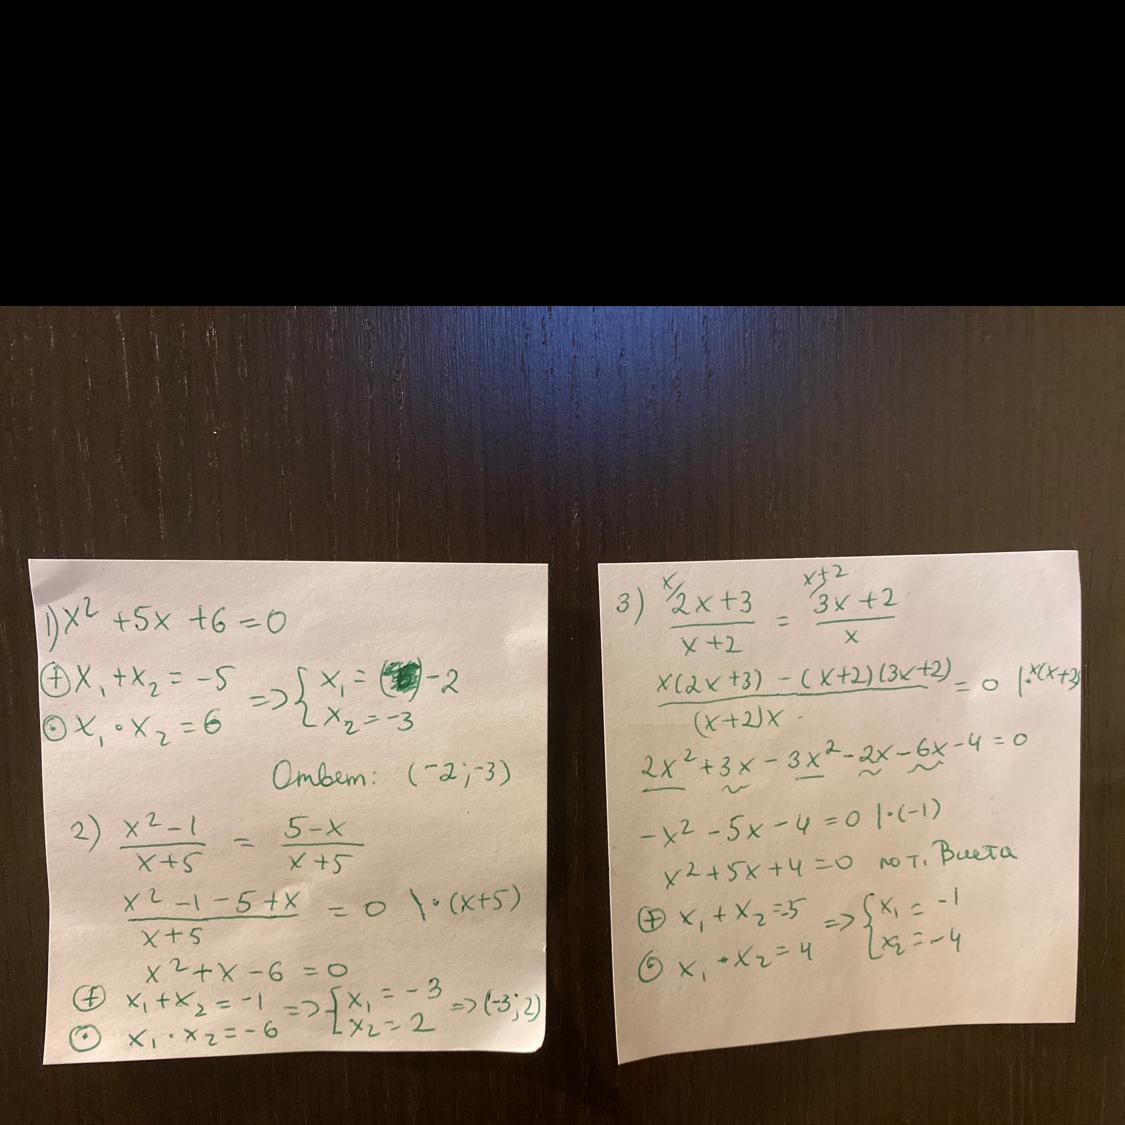 1) x² + 5x + 6 = 0
⊕ x₁ + x₂ = -5 => { x₁ = -2
⊙ x₁ · x₂ = 6 x₂ = -3
Ответ: (-2; -3)
2) (x² - 1)/(x + 5) = (5 - x)/(x + 5)
(x² - 1 - 5 + x)/(x + 5) = 0 \ · (x + 5)
x² + x - 6 = 0
⊕ x₁ + x₂ = -1 => { x₁ = -3 => (-3; 2)
⊙ x₁ · x₂ = -6 x₂ = 2
3) x/ (2x + 3)/(x + 2) = x+2/ (3x + 2)/x
(x(2x + 3) - (x + 2)(3x + 2))/((x + 2)x) = 0 | · x(x + 2)
2x² + 3x - 3x² - 2x - 6x - 4 = 0
-x² - 5x - 4 = 0 | · (-1)
x² + 5x + 4 = 0 по т. Виета
⊕ x₁ + x₂ = -5 => { x₁ = -1
⊙ x₁ · x₂ = 4 x₂ = -4